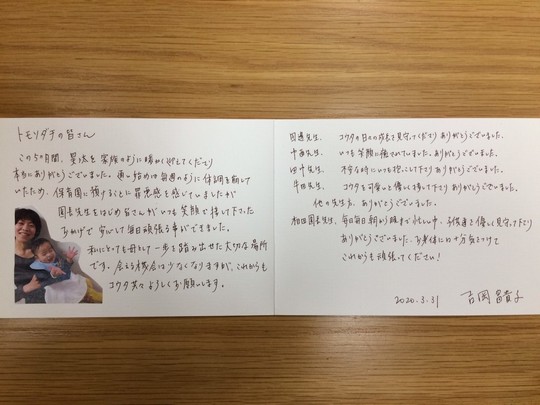 トモソダチの皆さん
この5ヶ月間、昊太を家族のように暖かく迎えてくださり
本当にありがとうございました。通い始めは毎週のように体調を崩して
いたため、保育園に預けることに罪悪感を感じていましたが
園長先生をはじめ皆さんがいつも笑顔で接して下さった
おかげで安心して毎日頑張る事ができました。
私にとっても母として一歩を踏み出せた大切な場所
です。会える機会は少なくなりますが、これからも
コウタ共々よろしくお願いします。
先生、コウタの日々の成長を見守ってくださりありがとうございました。
先生、いつも笑顔に癒されていました。ありがとうございました。
田中先生、不安な時にいつも抱っこして下さりありがとうございました。
牛田先生、コウタを可愛いと優しく接して下さりありがとうございました。
他の先生方、ありがとうございました。
和田園長先生、毎日毎日朝から晩まで忙しい中、お優しく見守って下さり
ありがとうございました。お身体には十分気をつけて
これからも頑張ってください!
2020.3.31
吉岡